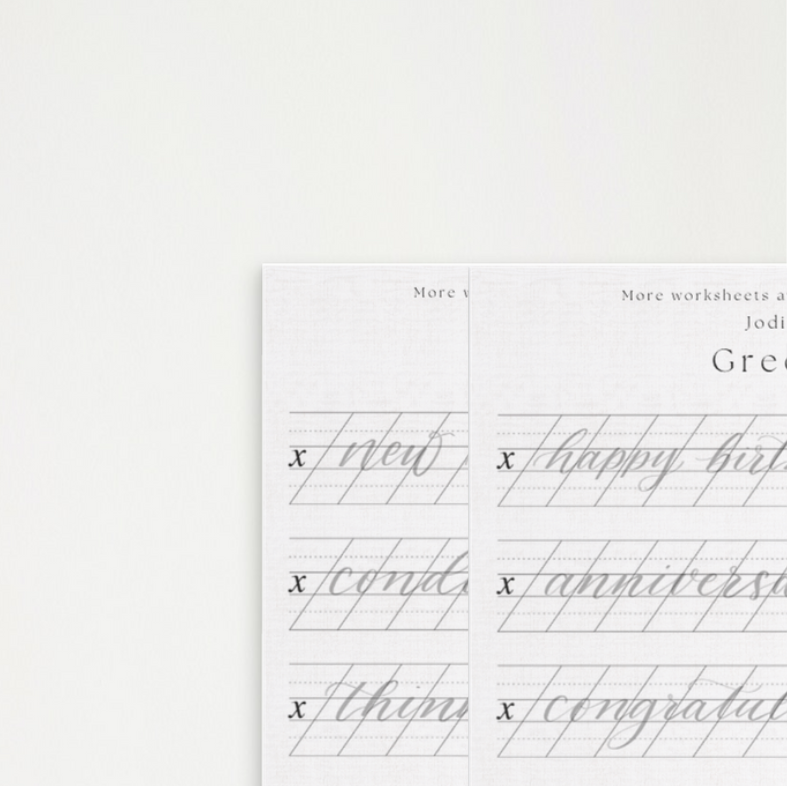 More w
x new
x cond
x thin
More worksheets a
Jodi
Gree
x happy birt
x anniversa
x congratul